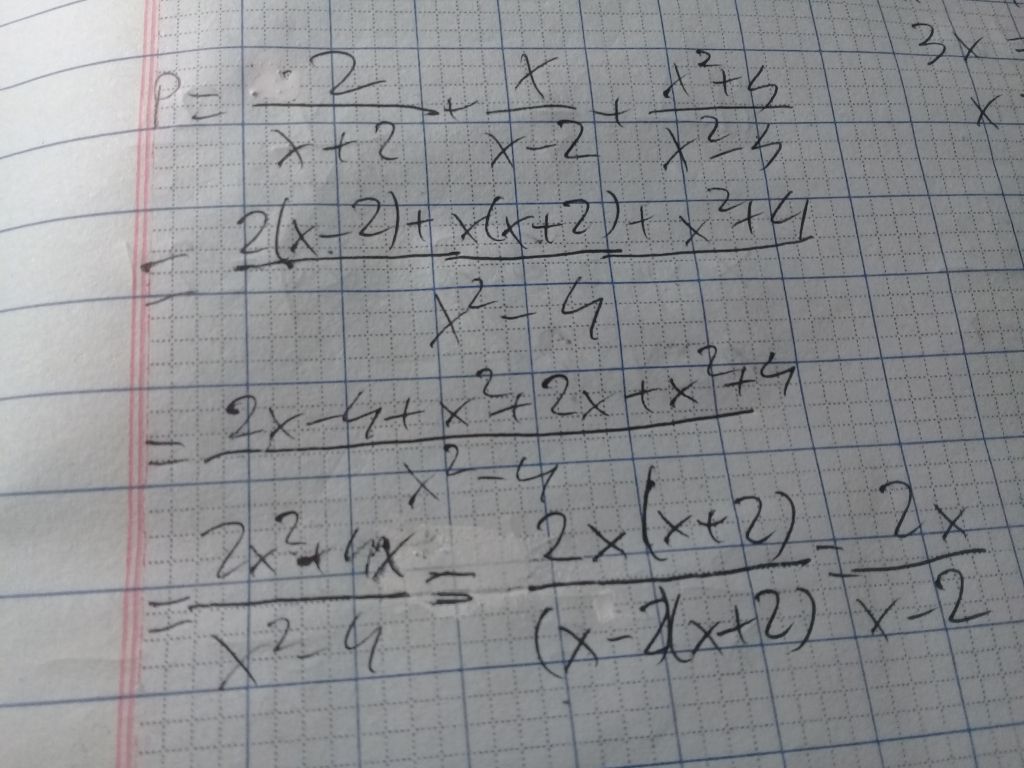 3x =
P = 2/(x+2) + x/(x-2) + (x²+4)/(x²-4)
x
= (2(x-2) + x(x+2) + x²+4)/(x²-4)
= (2x-4+x²+2x+x²+4)/(x²-4)
= (2x²+4x)/(x²-4) = (2x(x+2))/((x-2)(x+2)) = 2x/(x-2)